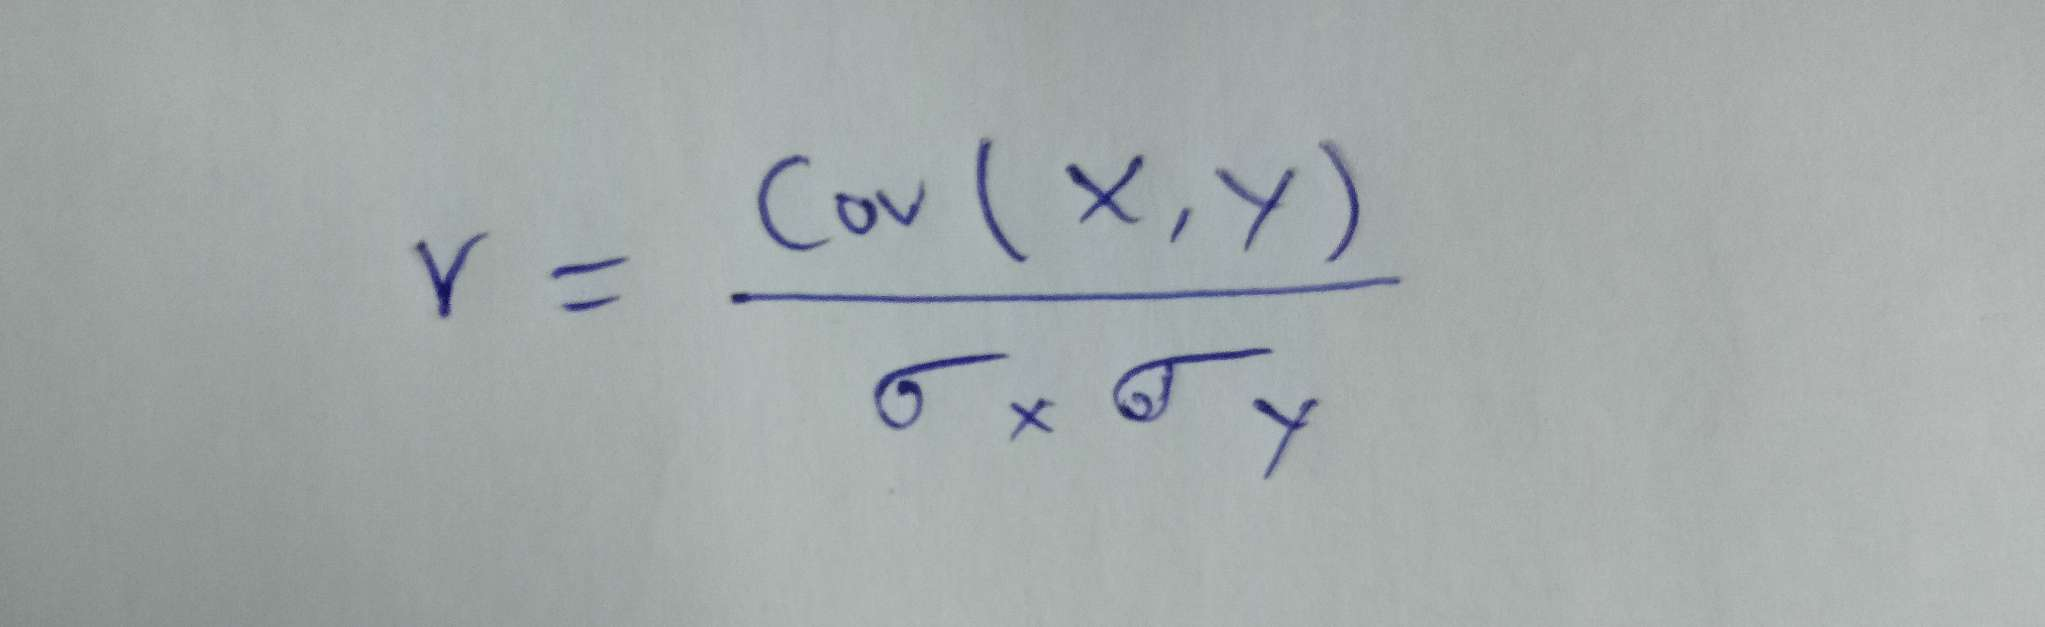 r = Cov(X,Y) / σx σy